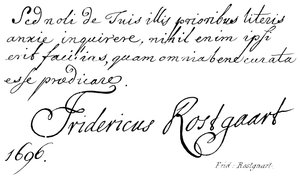 Sed noli de Tuis illis prioribus literis
anxie inquirere, nihil enim ipsi
erit facilius, quam omnia bene curata
esse prædicare.
Fridericus Rostgaart
1696.
Frid. Rostgaart.